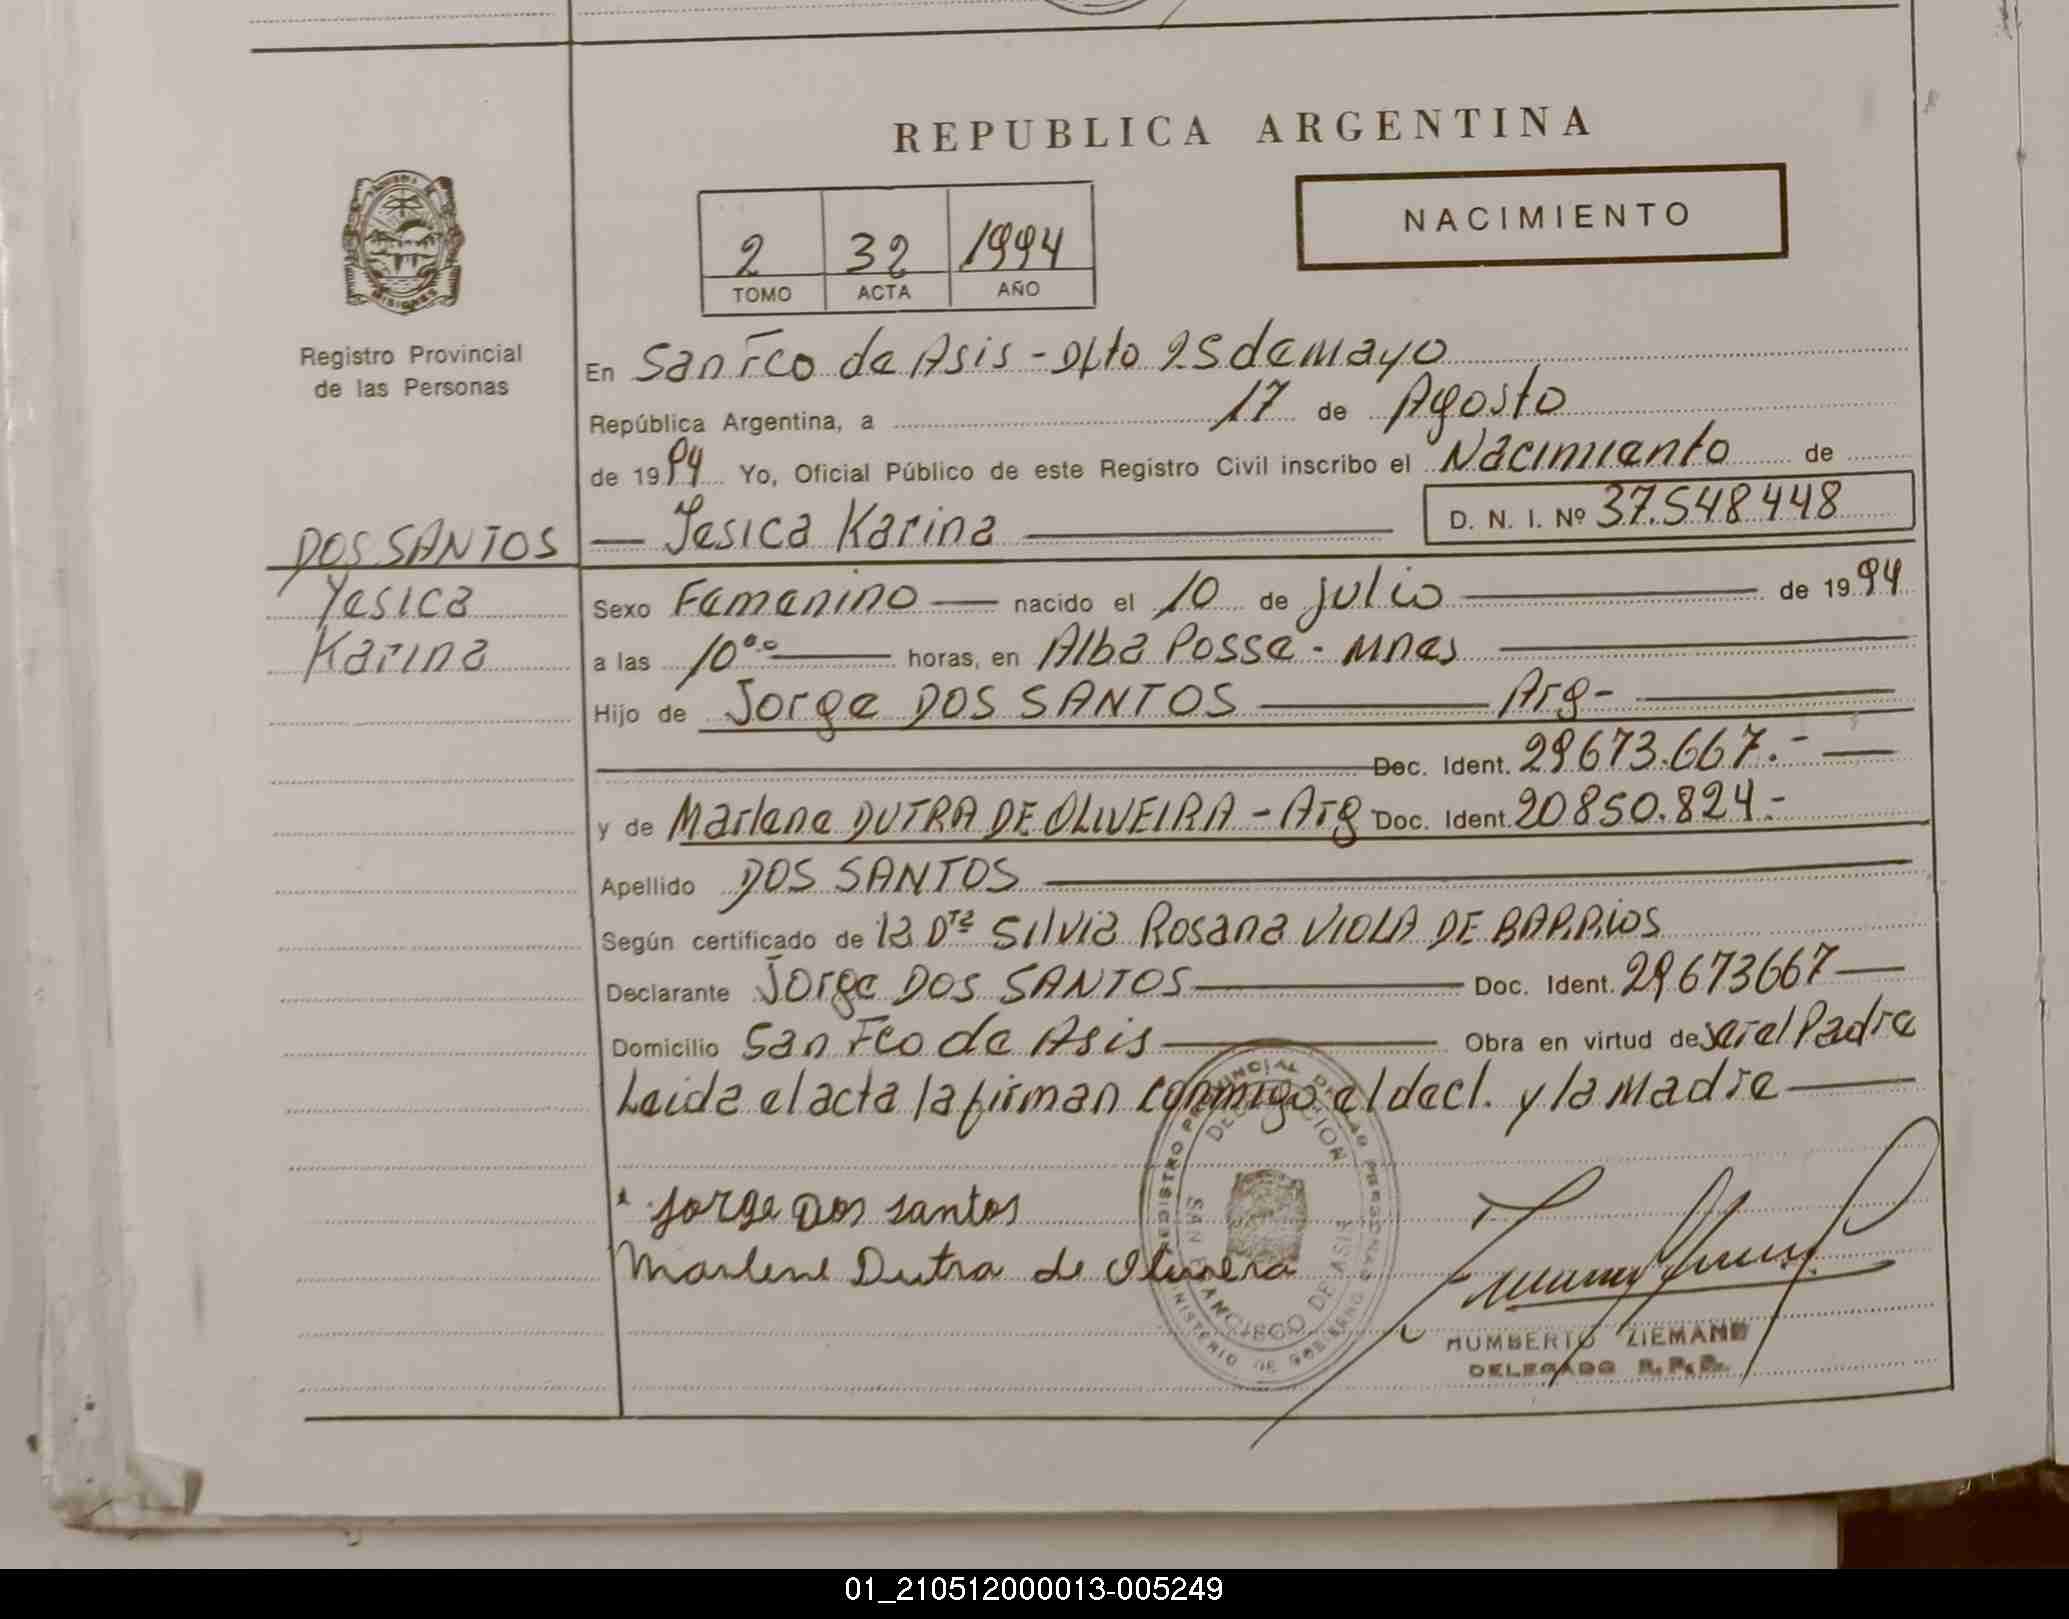 REPUBLICA ARGENTINA
NACIMIENTO
2 32 1994
TOMO ACTA AÑO
Registro Provincial
de las Personas
En San Fco de Asis - Dpto 25 de mayo
República Argentina, a 17 de Agosto
de 1994 Yo, Oficial Público de este Registro Civil inscribo el Nacimiento de
Yesica Karina D. N. I. Nº 37.548448
DOS SANTOS
Yesica
Karina
Sexo Femenino nacido el 10 de julio de 1994
a las 10°° horas, en Alba Posse - Mnes
Hijo de Jorge DOS SANTOS Arg-
Doc. Ident. 29673.667.-
y de Marlene DUTRA DE OLIVEIRA - Arg Doc. Ident. 20850.824.-
Apellido DOS SANTOS
Según certificado de la Dra Silvia Rosana VIOLA DE BARRIOS
Declarante Jorge DOS SANTOS Doc. Ident. 29673667
Domicilio San Fco de Asis Obra en virtud de ser el Padre
Leida el acta la firman conmigo el decl. y la Madre
Jorge Dos santos
Marlene Dutra de Oliveira
REGISTRO PROVINCIAL DE LAS PERSONAS
MINISTERIO DE GOBIERNO
DELEGACION
SAN FRANCISCO DE ASIS
HUMBERTO ZIEMANN
DELEGADO R. P. P.
01_210512000013-005249